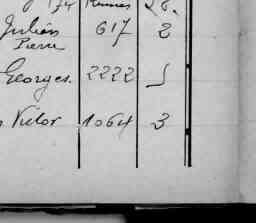 Julien 617 2
Pierre
Georges. 2222
Victor 1064 3